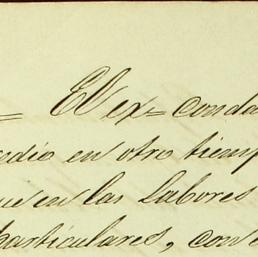 = El ex-conda
edio en otro tiemp
ue en las labores
particulares, con